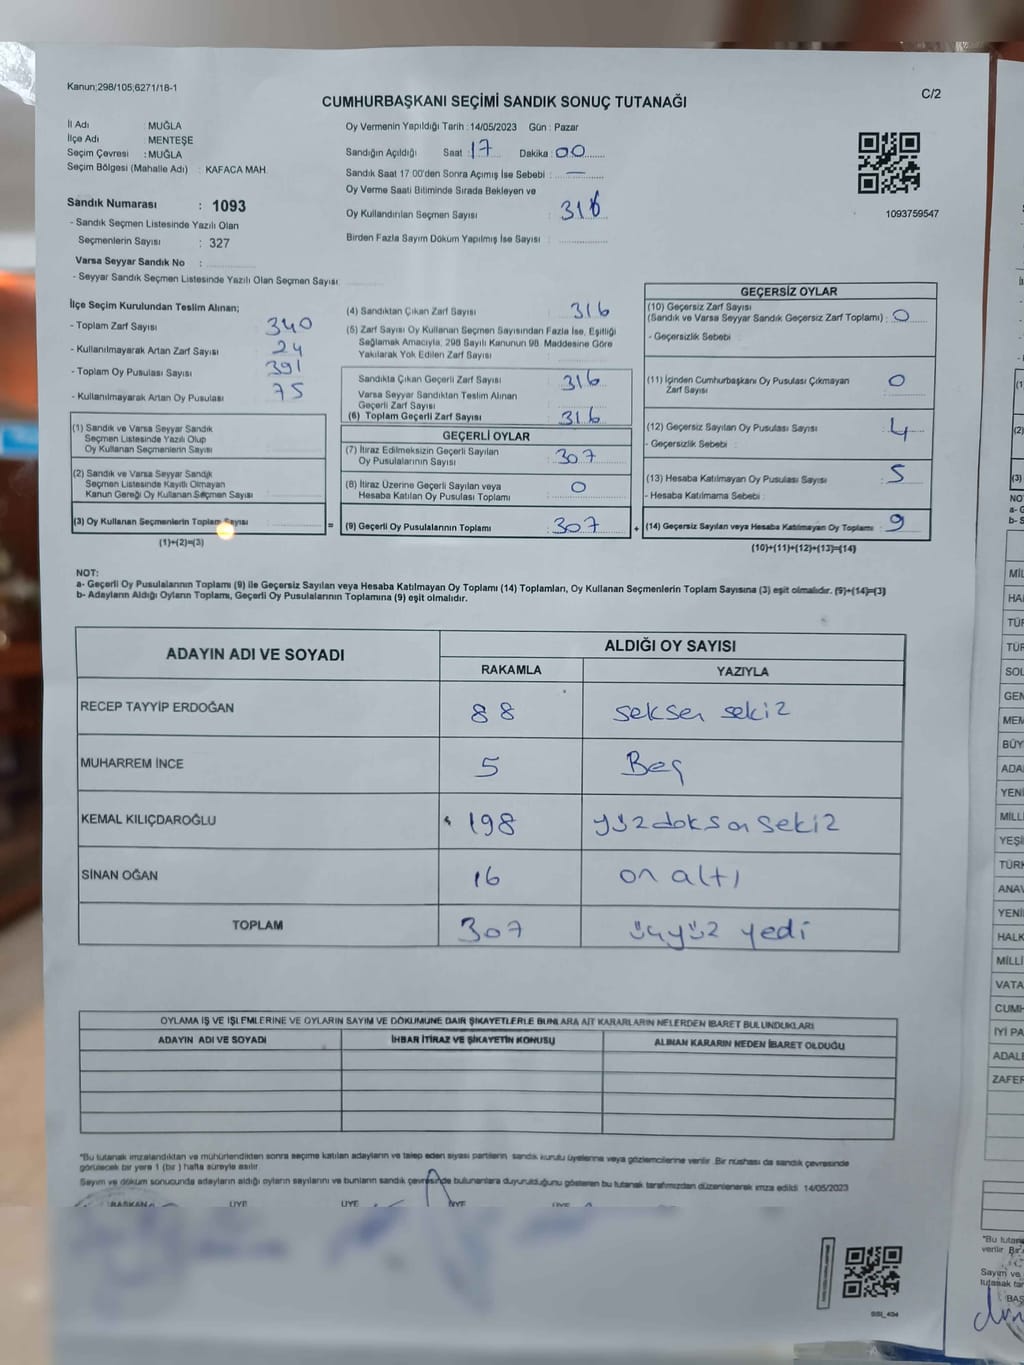 Kanun;298/105;6271/18-1
C/2
CUMHURBAŞKANI SEÇİMİ SANDIK SONUÇ TUTANAĞI
İl Adı : MUĞLA
İlçe Adı : MENTEŞE
Seçim Çevresi : MUĞLA
Seçim Bölgesi (Mahalle Adı) : KAFACA MAH.
Sandık Numarası : 1093
- Sandık Seçmen Listesinde Yazılı Olan
Seçmenlerin Sayısı : 327
Varsa Seyyar Sandık No :
- Seyyar Sandık Seçmen Listesinde Yazılı Olan Seçmen Sayısı
Oy Vermenin Yapıldığı Tarih : 14/05/2023 Gün : Pazar
Sandığın Açıldığı Saat : 17 Dakika : 00
Sandık Saat 17 00'den Sonra Açımış İse Sebebi : —
Oy Verme Saati Bitiminde Sırada Bekleyen ve
Oy Kullandırılan Seçmen Sayısı : 316
Birden Fazla Sayım Döküm Yapılmış İse Sayısı :
1093759547
İlçe Seçim Kurulundan Teslim Alınan;
- Toplam Zarf Sayısı 340
- Kullanılmayarak Artan Zarf Sayısı 24
- Toplam Oy Pusulası Sayısı 391
- Kullanılmayarak Artan Oy Pusulası 75
(1) Sandık ve Varsa Seyyar Sandık
Seçmen Listesinde Yazılı Olup
Oy Kullanan Seçmenlerin Sayısı
(2) Sandık ve Varsa Seyyar Sandık
Seçmen Listesinde Kayıtlı Olmayan
Kanun Gereği Oy Kullanan Seçmen Sayısı
(3) Oy Kullanan Seçmenlerin Toplam Sayısı :
(1)+(2)=(3)
(4) Sandıktan Çıkan Zarf Sayısı 316
(5) Zarf Sayısı Oy Kullanan Seçmen Sayısından Fazla İse, Eşitliği
Sağlamak Amacıyla, 298 Sayılı Kanunun 98. Maddesine Göre
Yakılarak Yok Edilen Zarf Sayısı
Sandıkta Çıkan Geçerli Zarf Sayısı 316
Varsa Seyyar Sandıktan Teslim Alınan
Geçerli Zarf Sayısı
(6) Toplam Geçerli Zarf Sayısı 316
GEÇERLİ OYLAR
(7) İtiraz Edilmeksizin Geçerli Sayılan
Oy Pusulalarının Sayısı 307
(8) İtiraz Üzerine Geçerli Sayılan veya
Hesaba Katılan Oy Pusulası Toplamı 0
= (9) Geçerli Oy Pusulalarının Toplamı 307
GEÇERSİZ OYLAR
(10) Geçersiz Zarf Sayısı
(Sandık ve Varsa Seyyar Sandık Geçersiz Zarf Toplamı) : 0
- Geçersizlik Sebebi
(11) İçinden Cumhurbaşkanı Oy Pusulası Çıkmayan
Zarf Sayısı 0
(12) Geçersiz Sayılan Oy Pusulası Sayısı 4
- Geçersizlik Sebebi :
(13) Hesaba Katılmayan Oy Pusulası Sayısı 5
- Hesaba Katılmama Sebebi :
+ (14) Geçersiz Sayılan veya Hesaba Katılmayan Oy Toplamı : 9
(10)+(11)+(12)+(13)=(14)
NOT:
a- Geçerli Oy Pusulalarının Toplamı (9) ile Geçersiz Sayılan veya Hesaba Katılmayan Oy Toplamı (14) Toplamları, Oy Kullanan Seçmenlerin Toplam Sayısına (3) eşit olmalıdır. (9)+(14)=(3)
b- Adayların Aldığı Oyların Toplamı, Geçerli Oy Pusulalarının Toplamına (9) eşit olmalıdır.
ADAYIN ADI VE SOYADI
ALDIĞI OY SAYISI
RAKAMLA YAZIYLA
RECEP TAYYİP ERDOĞAN 88 seksen sekiz
MUHARREM İNCE 5 Beş
KEMAL KILIÇDAROĞLU 198 yüzdoksansekiz
SİNAN OĞAN 16 on altı
TOPLAM 307 üçyüz yedi
OYLAMA İŞ VE İŞLEMLERİNE VE OYLARIN SAYIM VE DÖKÜMÜNE DAİR ŞİKAYETLERLE BUNLARA AİT KARARLARIN NELERDEN İBARET BULUNDUKLARI
ADAYIN ADI VE SOYADI İHBAR İTİRAZ VE ŞİKAYETİN KONUSU ALINAN KARARIN NEDEN İBARET OLDUĞU
*Bu tutanak imzalandıktan ve mühürlendikten sonra seçime katılan adayların ve talep eden siyasi partilerin sandık kurulu üyelerine veya gözlemcilerine verilir. Bir nüshası da sandık çevresinde
görülecek bir yere 1 (bir) hafta süreyle asılır.
Sayım ve döküm sonucunda adayların aldığı oyların sayılarını ve bunların sandık çevresinde bulunanlara duyurulduğunu gösteren bu tutanak tarafımızdan düzenlenerek imza edildi 14/05/2023
BAŞKAN ÜYE ÜYE ÜYE ÜYE
(2)
(3)
NOT
a- G
b- S
MİL
HA
TÜR
SOL
GEN
MEM
BÜY
ADA
YENİ
MİLL
YEŞİ
TÜRK
ANAV
YENİ
HALK
MİLLİ
VATA
CUMH
İYİ PA
ADALE
ZAFER
*Bu tutana
verilir. Bir
Sayım ve
tutanak tar
BAŞ